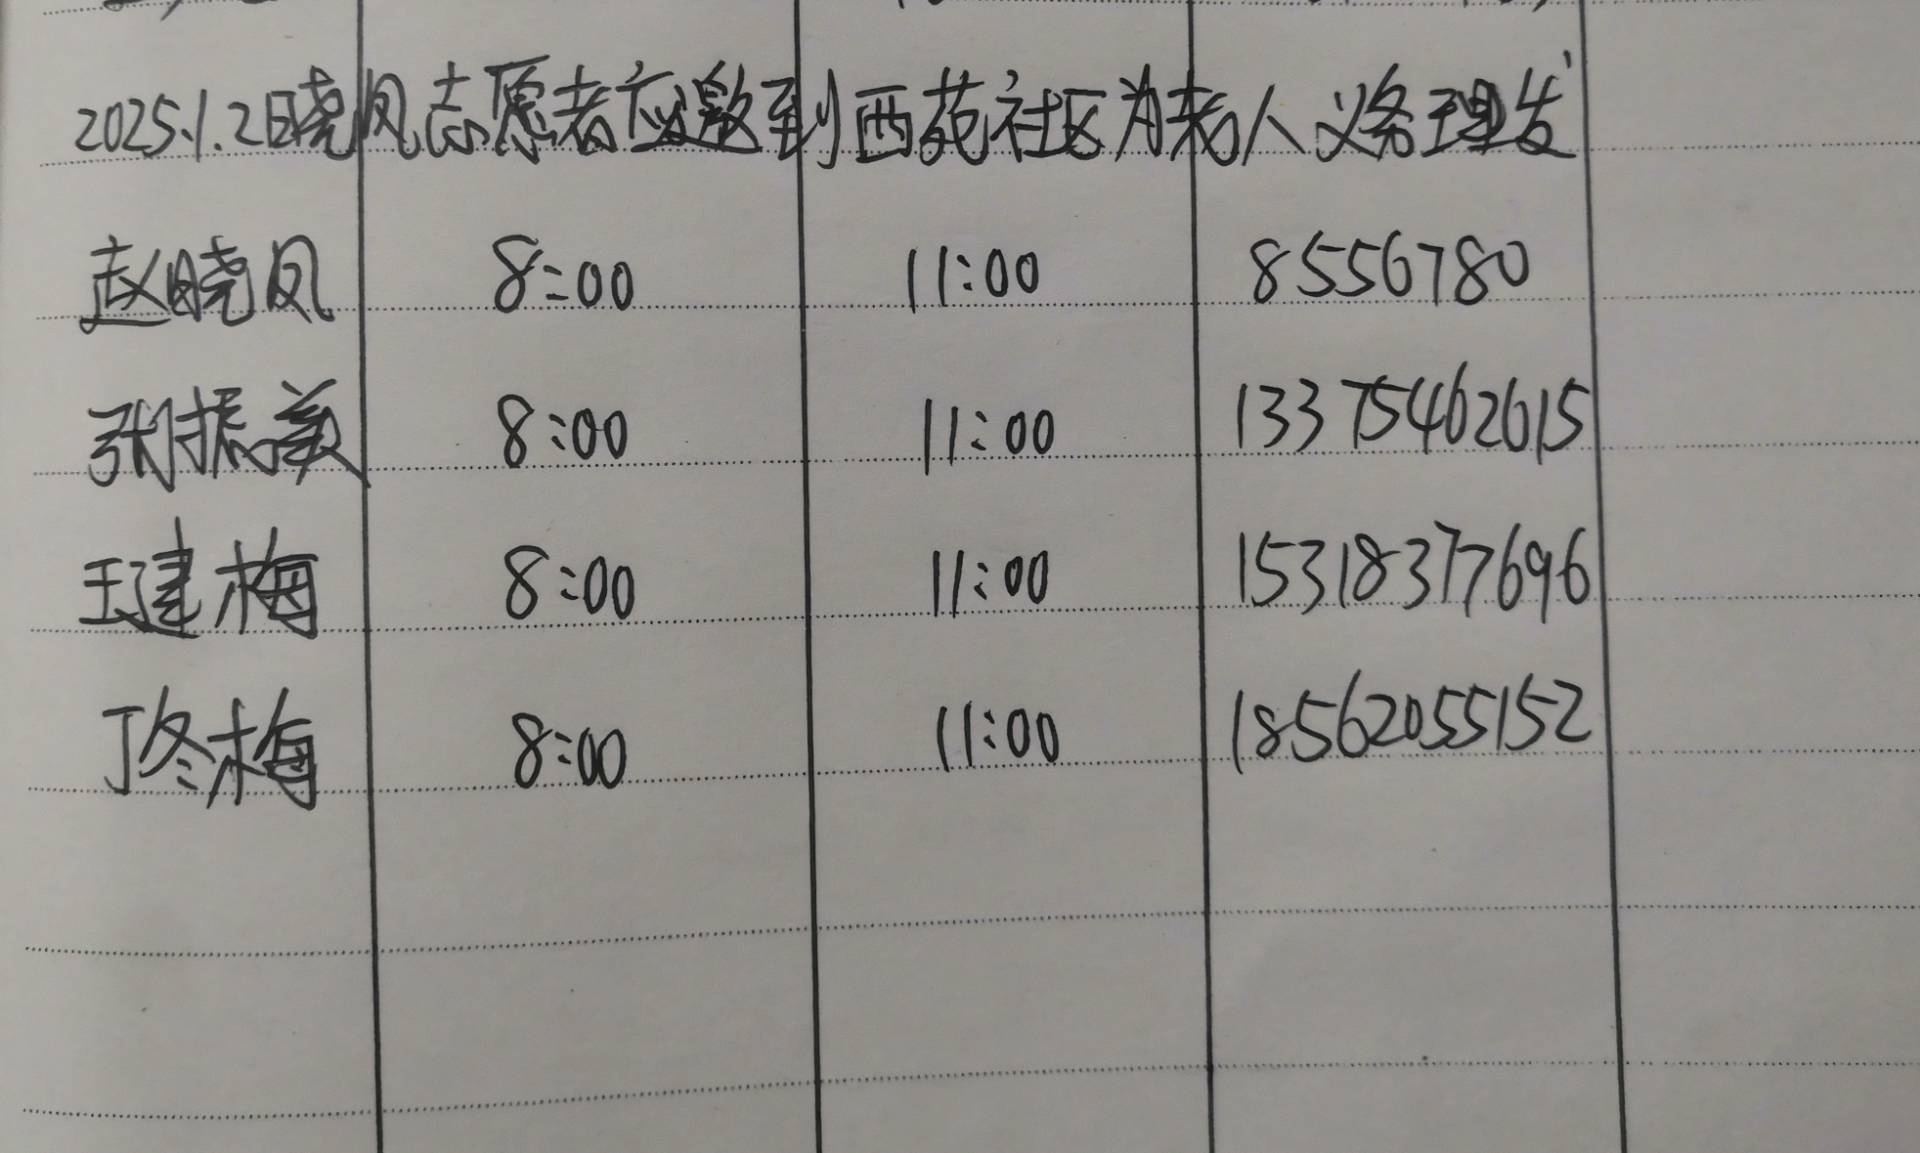 2025.1.2日晓凤志愿者应邀到西苑社区为老人义务理发
赵晓凤 8:00 11:00 8556780
张振美 8:00 11:00 13375462615
王建梅 8:00 11:00 15318377696
丁冬梅 8:00 11:00 18562055152